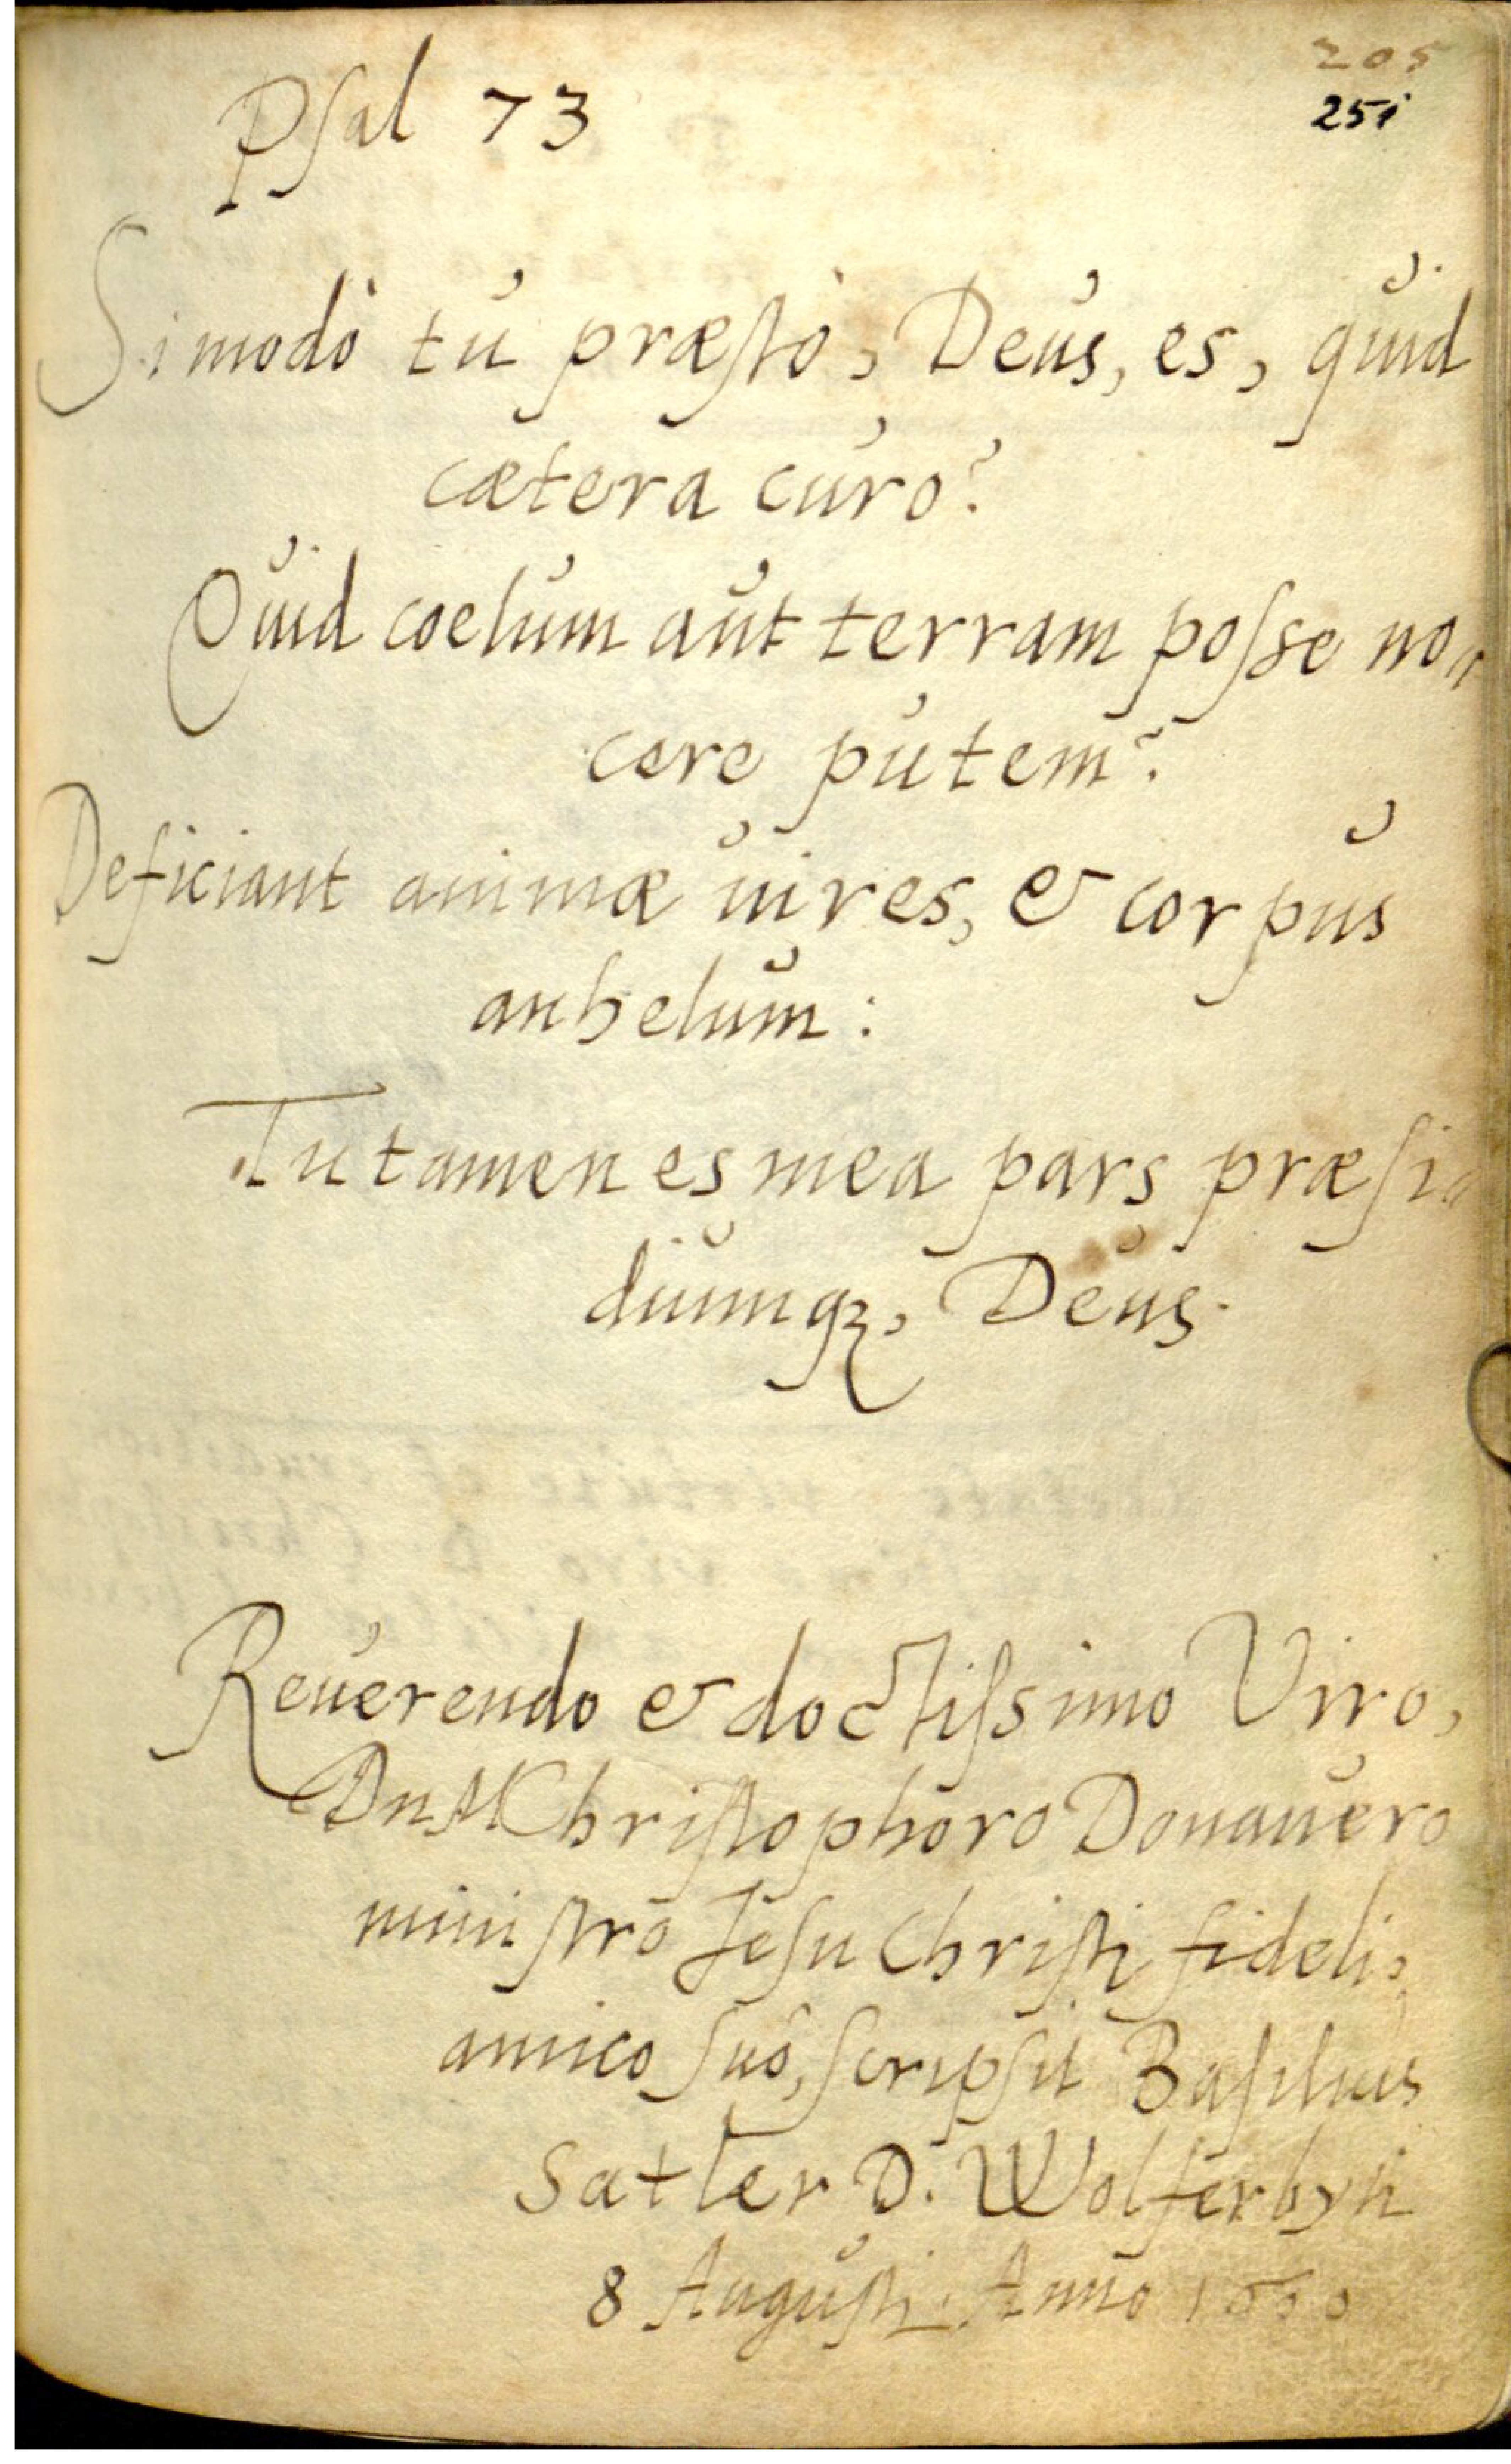 205
251
Psal 73
Si modò tu præstò, Deus, es, quid
cætera curo?
Quid coelum aut terram posse no„
cere putem?
Deficiant animæ uires, & corpus
anhelum:
Tu tamen es mea pars præsi„
diumqȝ, Deus.
Reuerendo & doctissimo Viro,
Christophoro Donauero
ministro Jesu Christi fideli,
amico suo, scripsit Basilius
Satler D. Wolferbyti
8 Augusti. Anno